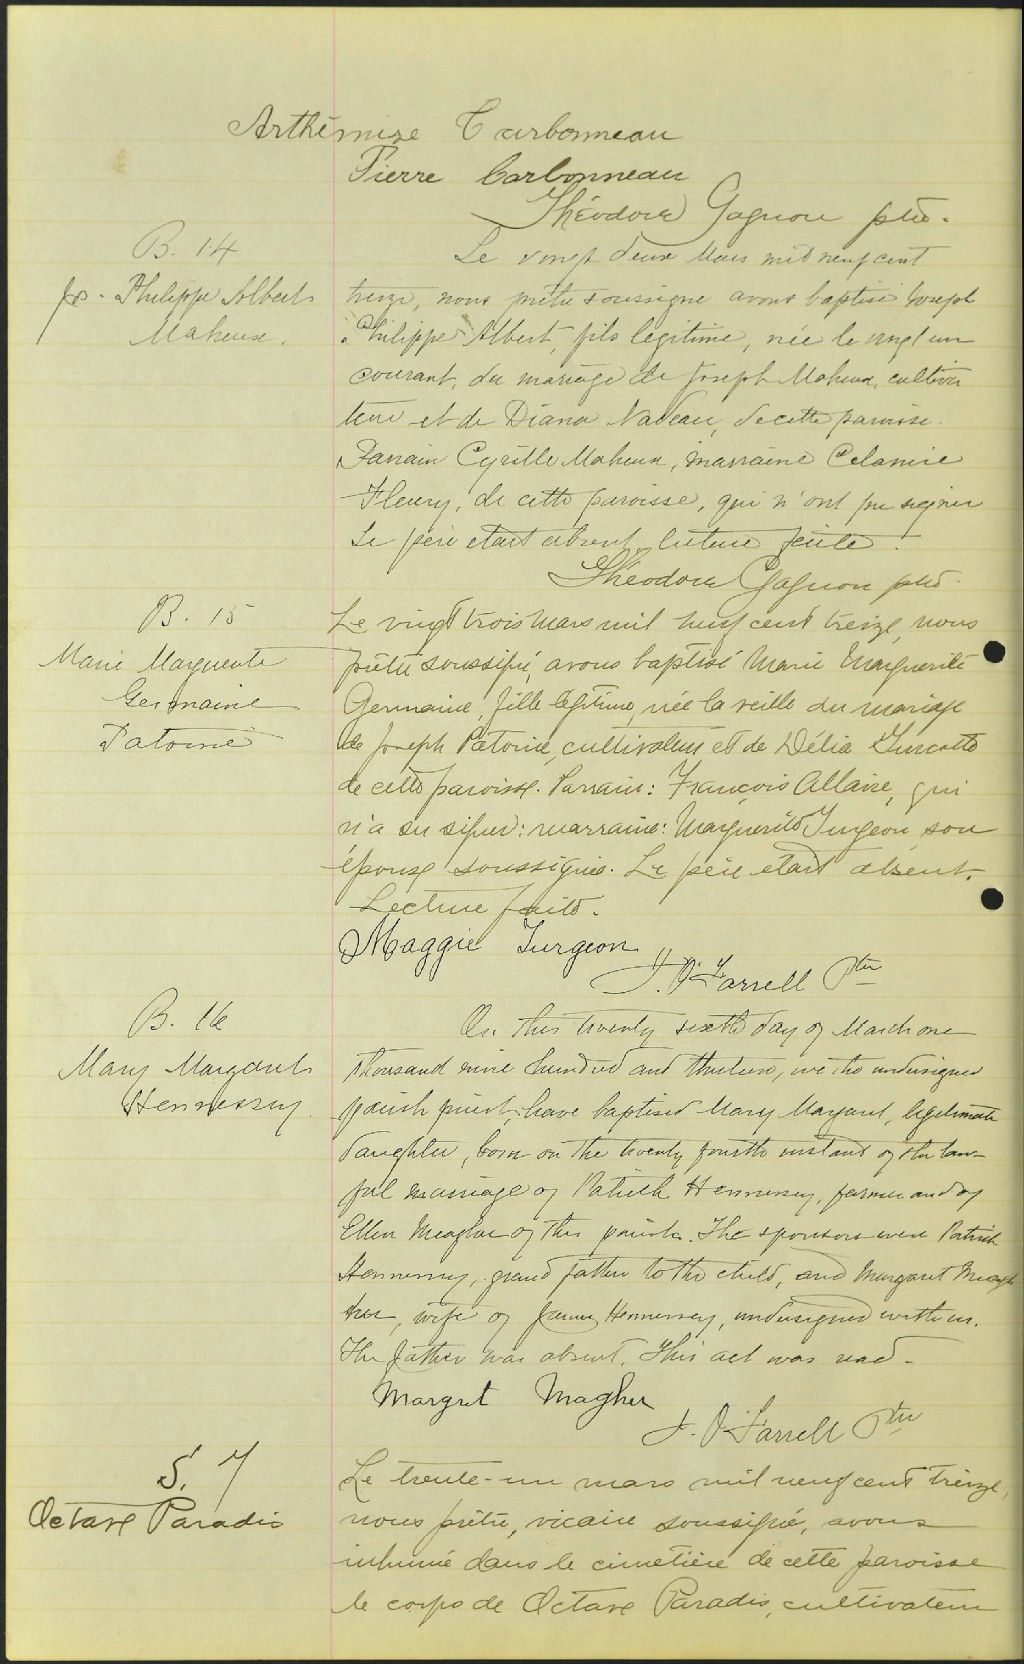 Arthémise Carbonneau
Pierre Carbonneau
Théodore Gagnon ptre.
B. 14
Jos. Philippe Albert
Maheux.
Le vingt deux Mars mil neuf cent
treize, nous prêtre soussigné avons baptisé Joseph
Philippe Albert, fils légitime, née le vingt un
courant, du mariage de Joseph Maheux, cultiva
teur et de Diana Nadeau, de cette paroisse.
Parrain Cyrille Maheux, marraine Célanire
Fleury, de cette paroisse, qui n'ont pu signer
Le père etait absent, lecture faite.
Théodore Gagnon ptre.
B. 15
Marie Marguerite
Germaine
Patoine
Le vingt trois mars mil neuf cent treize, nous
prêtre soussigné, avons baptisé Marie Marguerite
Germaine, fille légitime, née la veille du mariage
de Joseph Patoine, cultivateur et de Délia Turcotte
de cette paroisse. Parrain: François Allaire, qui
n'a su signer: marraine: Marguerite Turgeon, son
épouse soussignée. Le père etait absent.
Lecture faite.
Maggie Turgeon
J. O'Farrell Ptre
B. 16
Mary Margaret
Hennessey
On this twenty sixth day of March one
thousand nine hundred and thirteen, we the undersigned
parish priest, have baptised Mary Margaret, legitimate
daughter, born on the twenty fourth instant of the law-
ful marriage of Patrick Hennessey, farmer and of
Ellen Meagher of this parish. The sponsors were Patrick
Hennessey, grand father to the child, and Margaret Meag
her, wife of James Hennessey, undersigned with us.
The father was absent. This act was read.
Margret Magher
J. O'Farrell Ptre
S. 7
Octave Paradis
Le trente-un mars mil neuf cent treize,
nous prêtre, vicaire soussigné, avons
inhumé dans le cimetière de cette paroisse
le corps de Octave Paradis, cultivateur